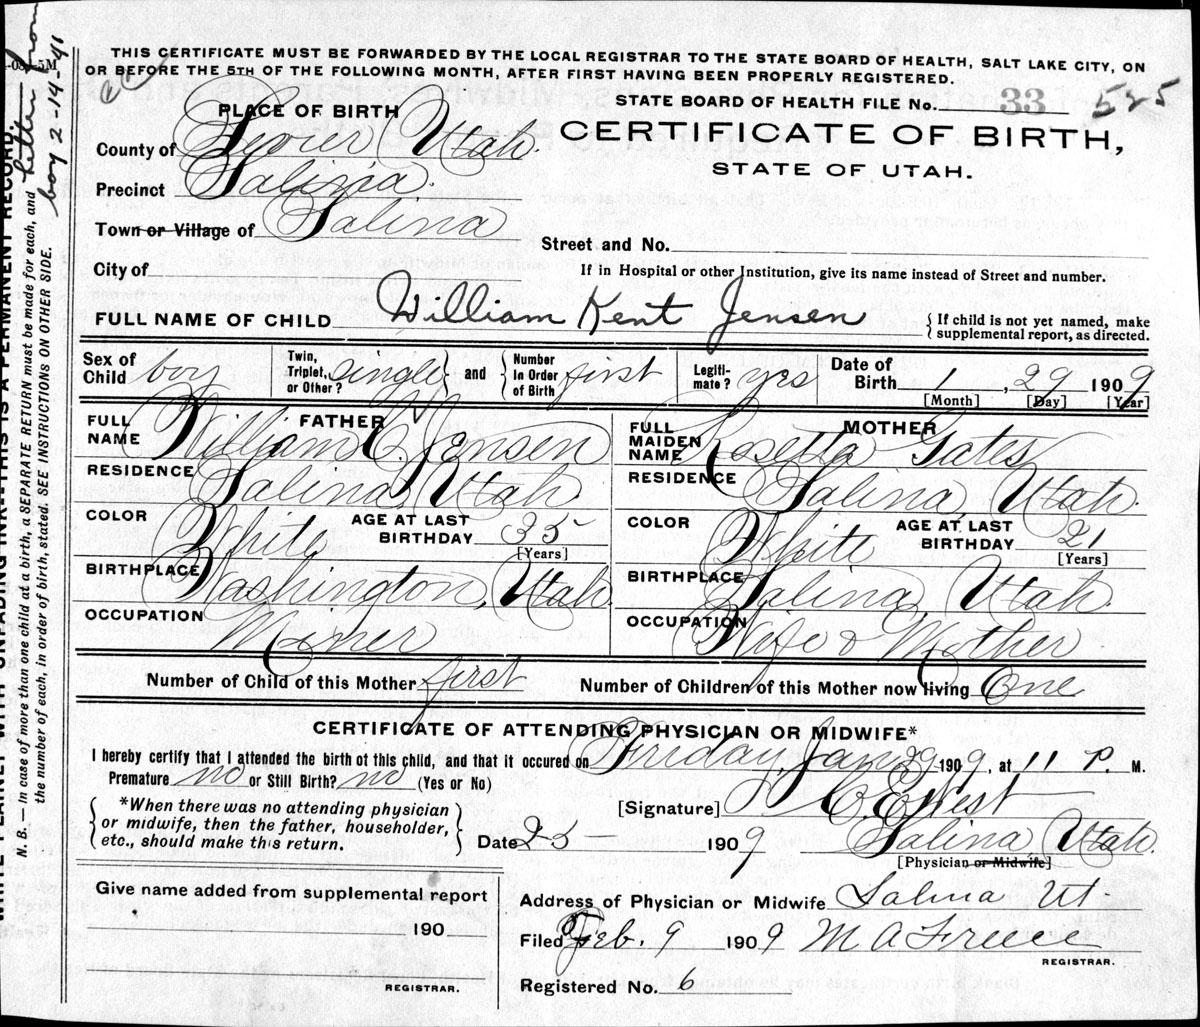 THIS CERTIFICATE MUST BE FORWARDED BY THE LOCAL REGISTRAR TO THE STATE BOARD OF HEALTH, SALT LAKE CITY, ON
OR BEFORE THE 5TH OF THE FOLLOWING MONTH, AFTER FIRST HAVING BEEN PROPERLY REGISTERED.
STATE BOARD OF HEALTH FILE No. 33 525
CERTIFICATE OF BIRTH,
STATE OF UTAH.
PLACE OF BIRTH
County of Sevier Utah.
Precinct Salina.
Town or Village of Salina
Street and No.
City of
If in Hospital or other Institution, give its name instead of Street and number.
FULL NAME OF CHILD William Kent Jensen
{ If child is not yet named, make
supplemental report, as directed.
Sex of Child boy
Twin, Triplet, or Other? single } and { Number In Order of Birth first
Legitimate? yes
Date of Birth 1, 29 1909
[Month] [Day] [Year]
FATHER
FULL NAME William C. Jensen
RESIDENCE Salina, Utah
COLOR White AGE AT LAST BIRTHDAY 35
[Years]
BIRTHPLACE Washington, Utah.
OCCUPATION Miner
MOTHER
FULL MAIDEN NAME Rosetta Gates
RESIDENCE Salina, Utah
COLOR White AGE AT LAST BIRTHDAY 21
[Years]
BIRTHPLACE Salina, Utah.
OCCUPATION Wife & Mother
Number of Child of this Mother first Number of Children of this Mother now living One
CERTIFICATE OF ATTENDING PHYSICIAN OR MIDWIFE*
I hereby certify that I attended the birth of this child, and that it occured on Friday, Jan 29 1909, at 11 P. M.
Premature no or Still Birth? no (Yes or No)
{ *When there was no attending physician
or midwife, then the father, householder,
etc., should make this return. }
[Signature] C. E. West
Salina, Utah.
[Physician or Midwife]
Date 1909
Give name added from supplemental report
190
REGISTRAR.
Address of Physician or Midwife Salina, Ut
Filed Feb. 9 1909 M A
REGISTRAR.
Registered No. 6
N. B.—In case of more than one child at a birth, a SEPARATE RETURN must be made for each, and
the number of each, in order of birth, stated. SEE INSTRUCTIONS ON OTHER SIDE.
WITH UNFADING INK—THIS IS A PERMANENT RECORD.
letter from
boy 2-14-41
5M